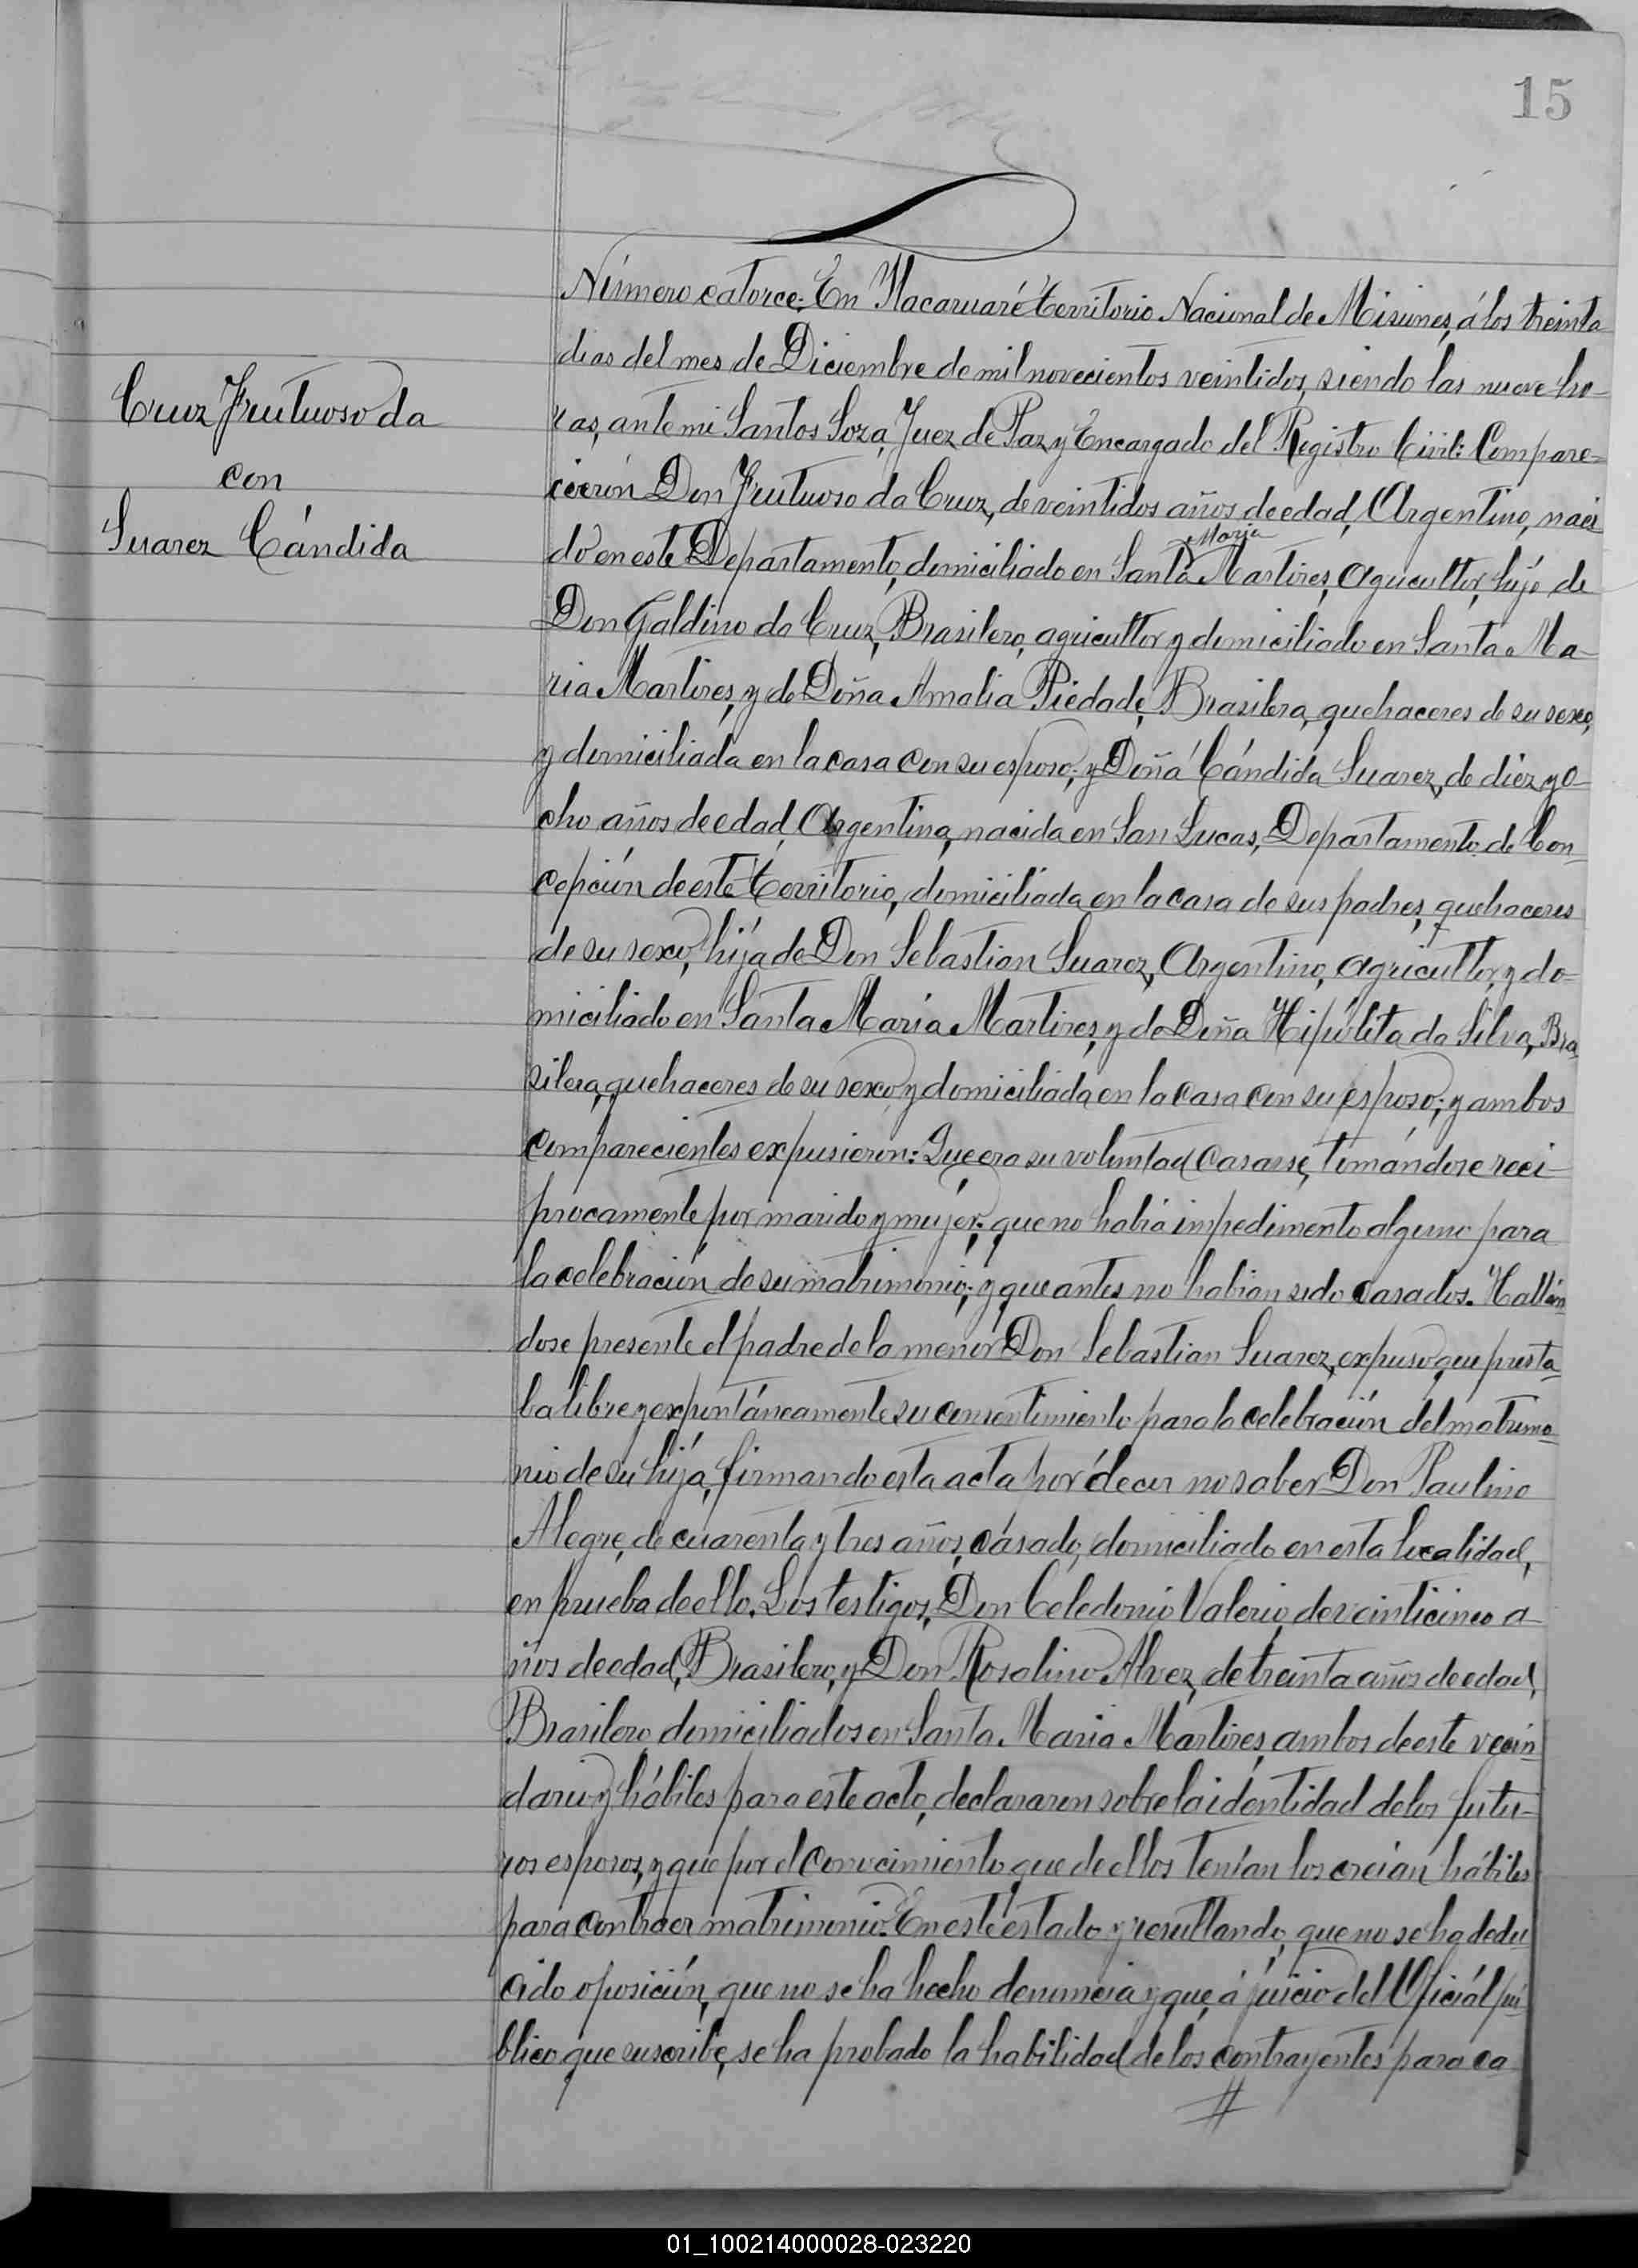 15
Número catorce: En Itacaruaré territorio Nacional de Misiones, á los treinta
dias del mes de Diciembre de mil novecientos veintidos, siendo las nueve ho-
Cruz Frutuoso da
con
Suarez Cándida
ras, ante mi Santos Soza, Juez de Paz y Encargado del Registro Civil: Compare-
cierón Don Frutuoso da Cruz, de veintidos años de edad, Argentino, naci
do en este Departamento, domiciliado en Santa Maria Martires, agricultor, hijo de
Don Galdino da Cruz, Brasilero, agricultor y domiciliado en Santa Ma-
ria Martires, y de Doña Amalia Piedade, Brasilera, quehaceres de su sexo,
y domiciliada en la casa con su esposo; y Doña Cándida Suarez, de diez y o-
cho años de edad, Argentina, nacida en San Lucas, Departamento de Con-
cepción de este territorio, domiciliada en la casa de sus padres, quehaceres
de su sexo, hija de Don Sebastian Suarez, Argentino, agricultor, y do-
miciliado en Santa Maria Martires, y de Doña Hipólita da Silva, Bra
silera, quehaceres de su sexo y domiciliada en la casa con su esposo; y ambos
comparecientes expusieron: Que era su voluntad casarse, tomándose reci-
procamente por marido y mujer; que no habia impedimento alguno para
la celebración de su matrimonio; y que antes no habian sido casados. Hallán-
dose presente el padre de la menor Don Sebastian Suarez, expuso que presta-
ba libre y expontáneamente su consentimiento para la celebración del matrimo-
nio de su hija, firmando esta acta por decir no saber Don Paulino
Alegre, de cuarenta y tres años, casado, domiciliado en esta localidad,
en prueba de ello. Los testigos, Don Celedonio Valerio, de veinticinco a-
ños de edad, Brasilero, y Don Rosalino Alvez, de treinta años de edad,
Brasilero, domiciliados en Santa Maria Martires, ambos de este vecin-
dario y hábiles para este acto, declararon sobre la identidad de los futu-
ros esposos, y que por el conocimiento que de ellos tenían los creían hábiles
para contraer matrimonio. En este estado y resultando, que no se ha dedu
cido oposición, que no se ha hecho denuncia y que, á juicio del Oficial pú-
blico que suscribe, se ha probado la habilidad de los contrayentes para ca
#
01_100214000028-023220